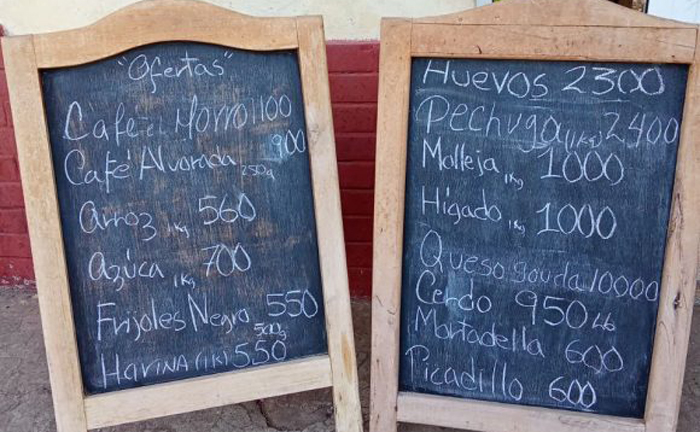 "Ofertas"
Café el Morro 1100
Café Alvorada 250g 900
Arroz 1Kg 560
azúca 1Kg 700
Frijoles Negro 500g 550
Harina (1K) 550
Huevos 2300
Pechuga (1Kg) 2400
Molleja 1Kg 1000
Higado 1Kg 1000
Queso gouda 10000
Cerdo 950 Lb
Mortadella 600
Picadillo 600